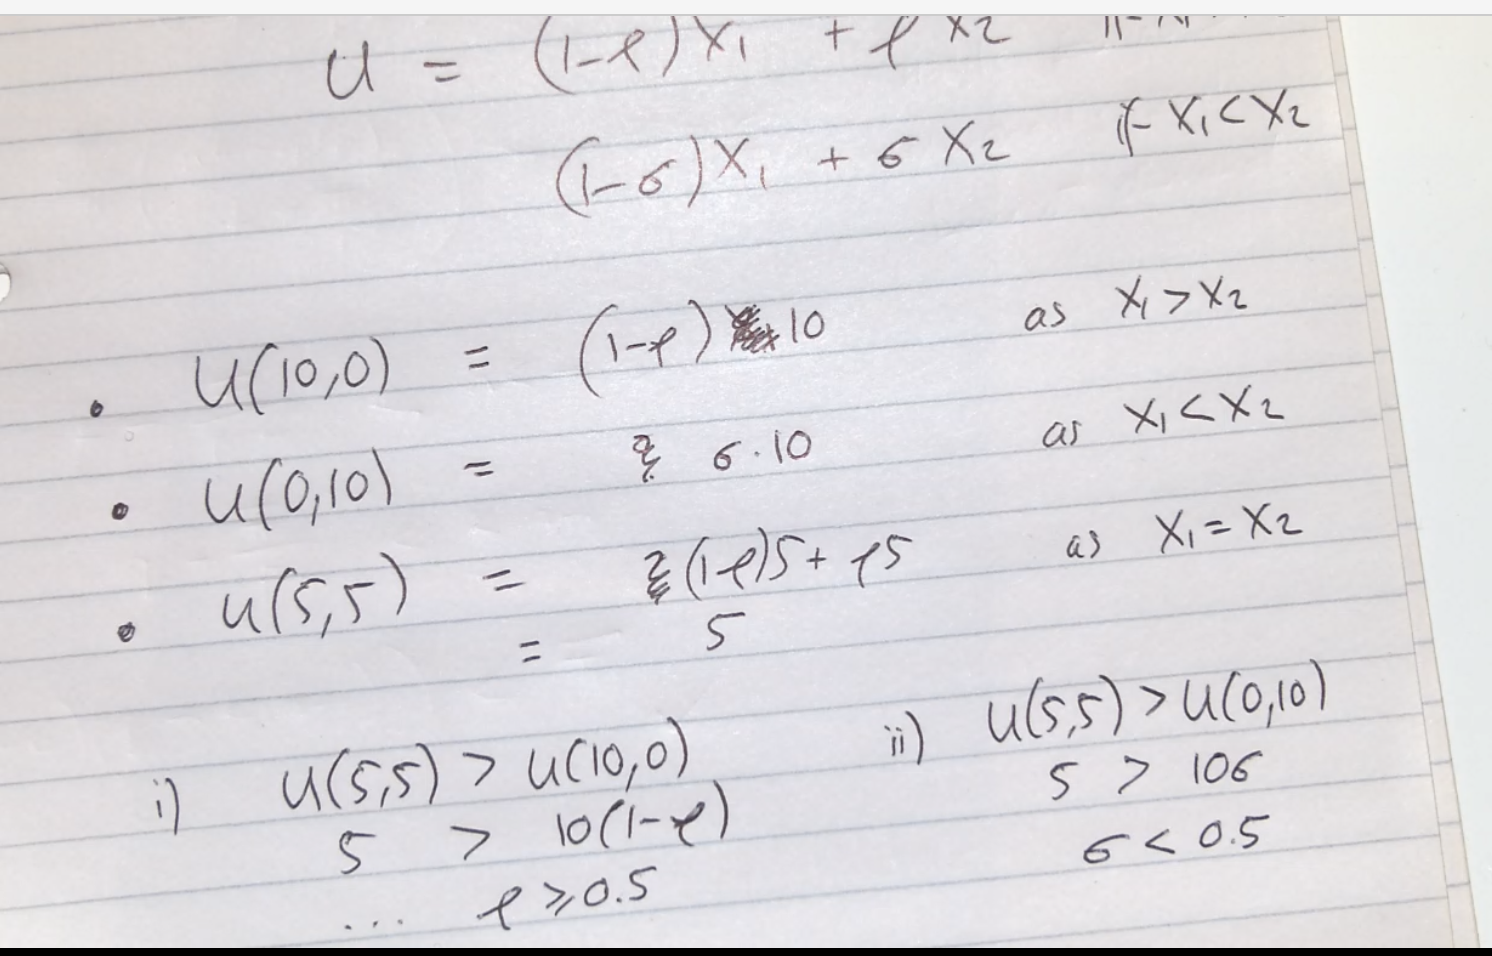 U = (1-ρ)X₁ + ρ X₂
(1-σ)X₁ + σ X₂ if X₁ < X₂
• U(10,0) = (1-ρ) 10 as X₁ > X₂
• U(0,10) = σ · 10 as X₁ < X₂
• U(5,5) = (1-ρ)5 + ρ5 as X₁ = X₂
= 5
i) U(5,5) > U(10,0) ii) U(5,5) > U(0,10)
5 > 10(1-ρ) 5 > 10σ
... ρ ⩾ 0.5 σ < 0.5